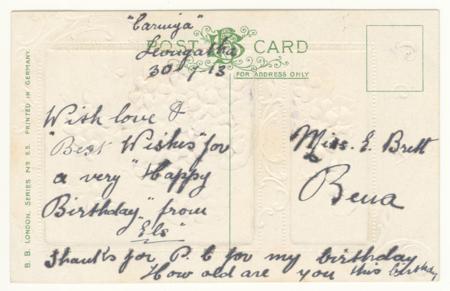 "Caringa"
Leongatha
30/7/13
POST CARD
BB
FOR ADDRESS ONLY
With love &
"Best Wishes" for
a very "Happy
Birthday" from
"Els"
Thanks for P.C for my birthday
How old are you this birthday
Miss. E. Brett
Bena
B. B. LONDON, SERIES NO E5. PRINTED IN GERMANY.